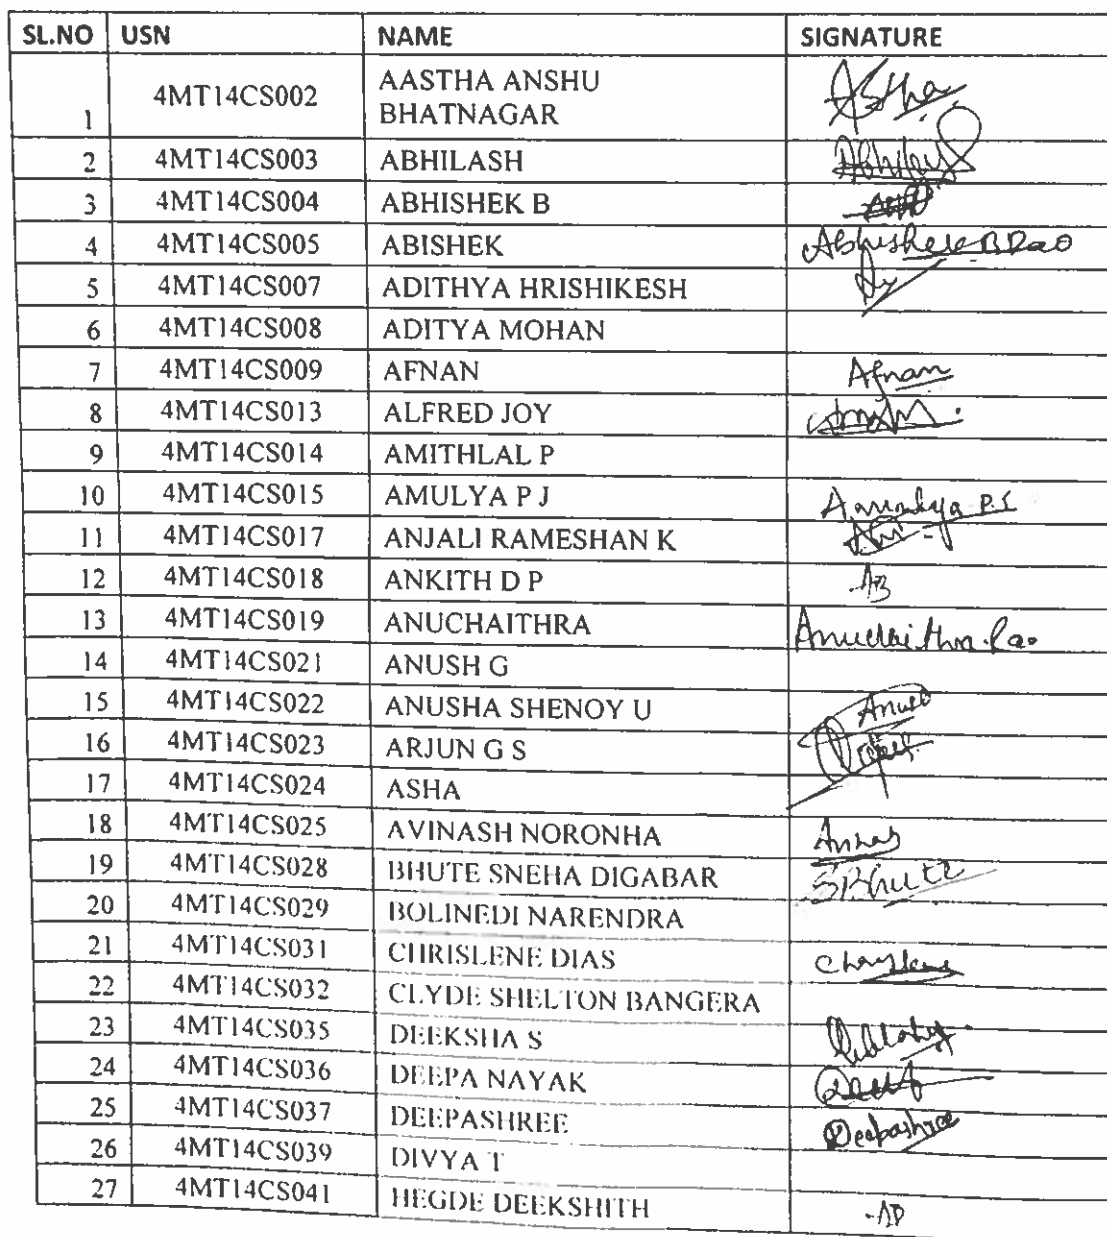 SL.NO USN NAME SIGNATURE
1 4MT14CS002 AASTHA ANSHU
BHATNAGAR
2 4MT14CS003 ABHILASH
3 4MT14CS004 ABHISHEK B
4 4MT14CS005 ABISHEK
5 4MT14CS007 ADITHYA HRISHIKESH
6 4MT14CS008 ADITYA MOHAN
7 4MT14CS009 AFNAN Afnan
8 4MT14CS013 ALFRED JOY
9 4MT14CS014 AMITHLAL P
10 4MT14CS015 AMULYA P J
11 4MT14CS017 ANJALI RAMESHAN K
12 4MT14CS018 ANKITH D P
13 4MT14CS019 ANUCHAITHRA
14 4MT14CS021 ANUSH G
15 4MT14CS022 ANUSHA SHENOY U
16 4MT14CS023 ARJUN G S
17 4MT14CS024 ASHA
18 4MT14CS025 AVINASH NORONHA
19 4MT14CS028 BHUTE SNEHA DIGABAR
20 4MT14CS029 BOLINEDI NARENDRA
21 4MT14CS031 CHRISLENE DIAS
22 4MT14CS032 CLYDE SHELTON BANGERA
23 4MT14CS035 DEEKSHA S
24 4MT14CS036 DEEPA NAYAK
25 4MT14CS037 DEEPASHREE Deepashree
26 4MT14CS039 DIVYA T
27 4MT14CS041 HEGDE DEEKSHITH